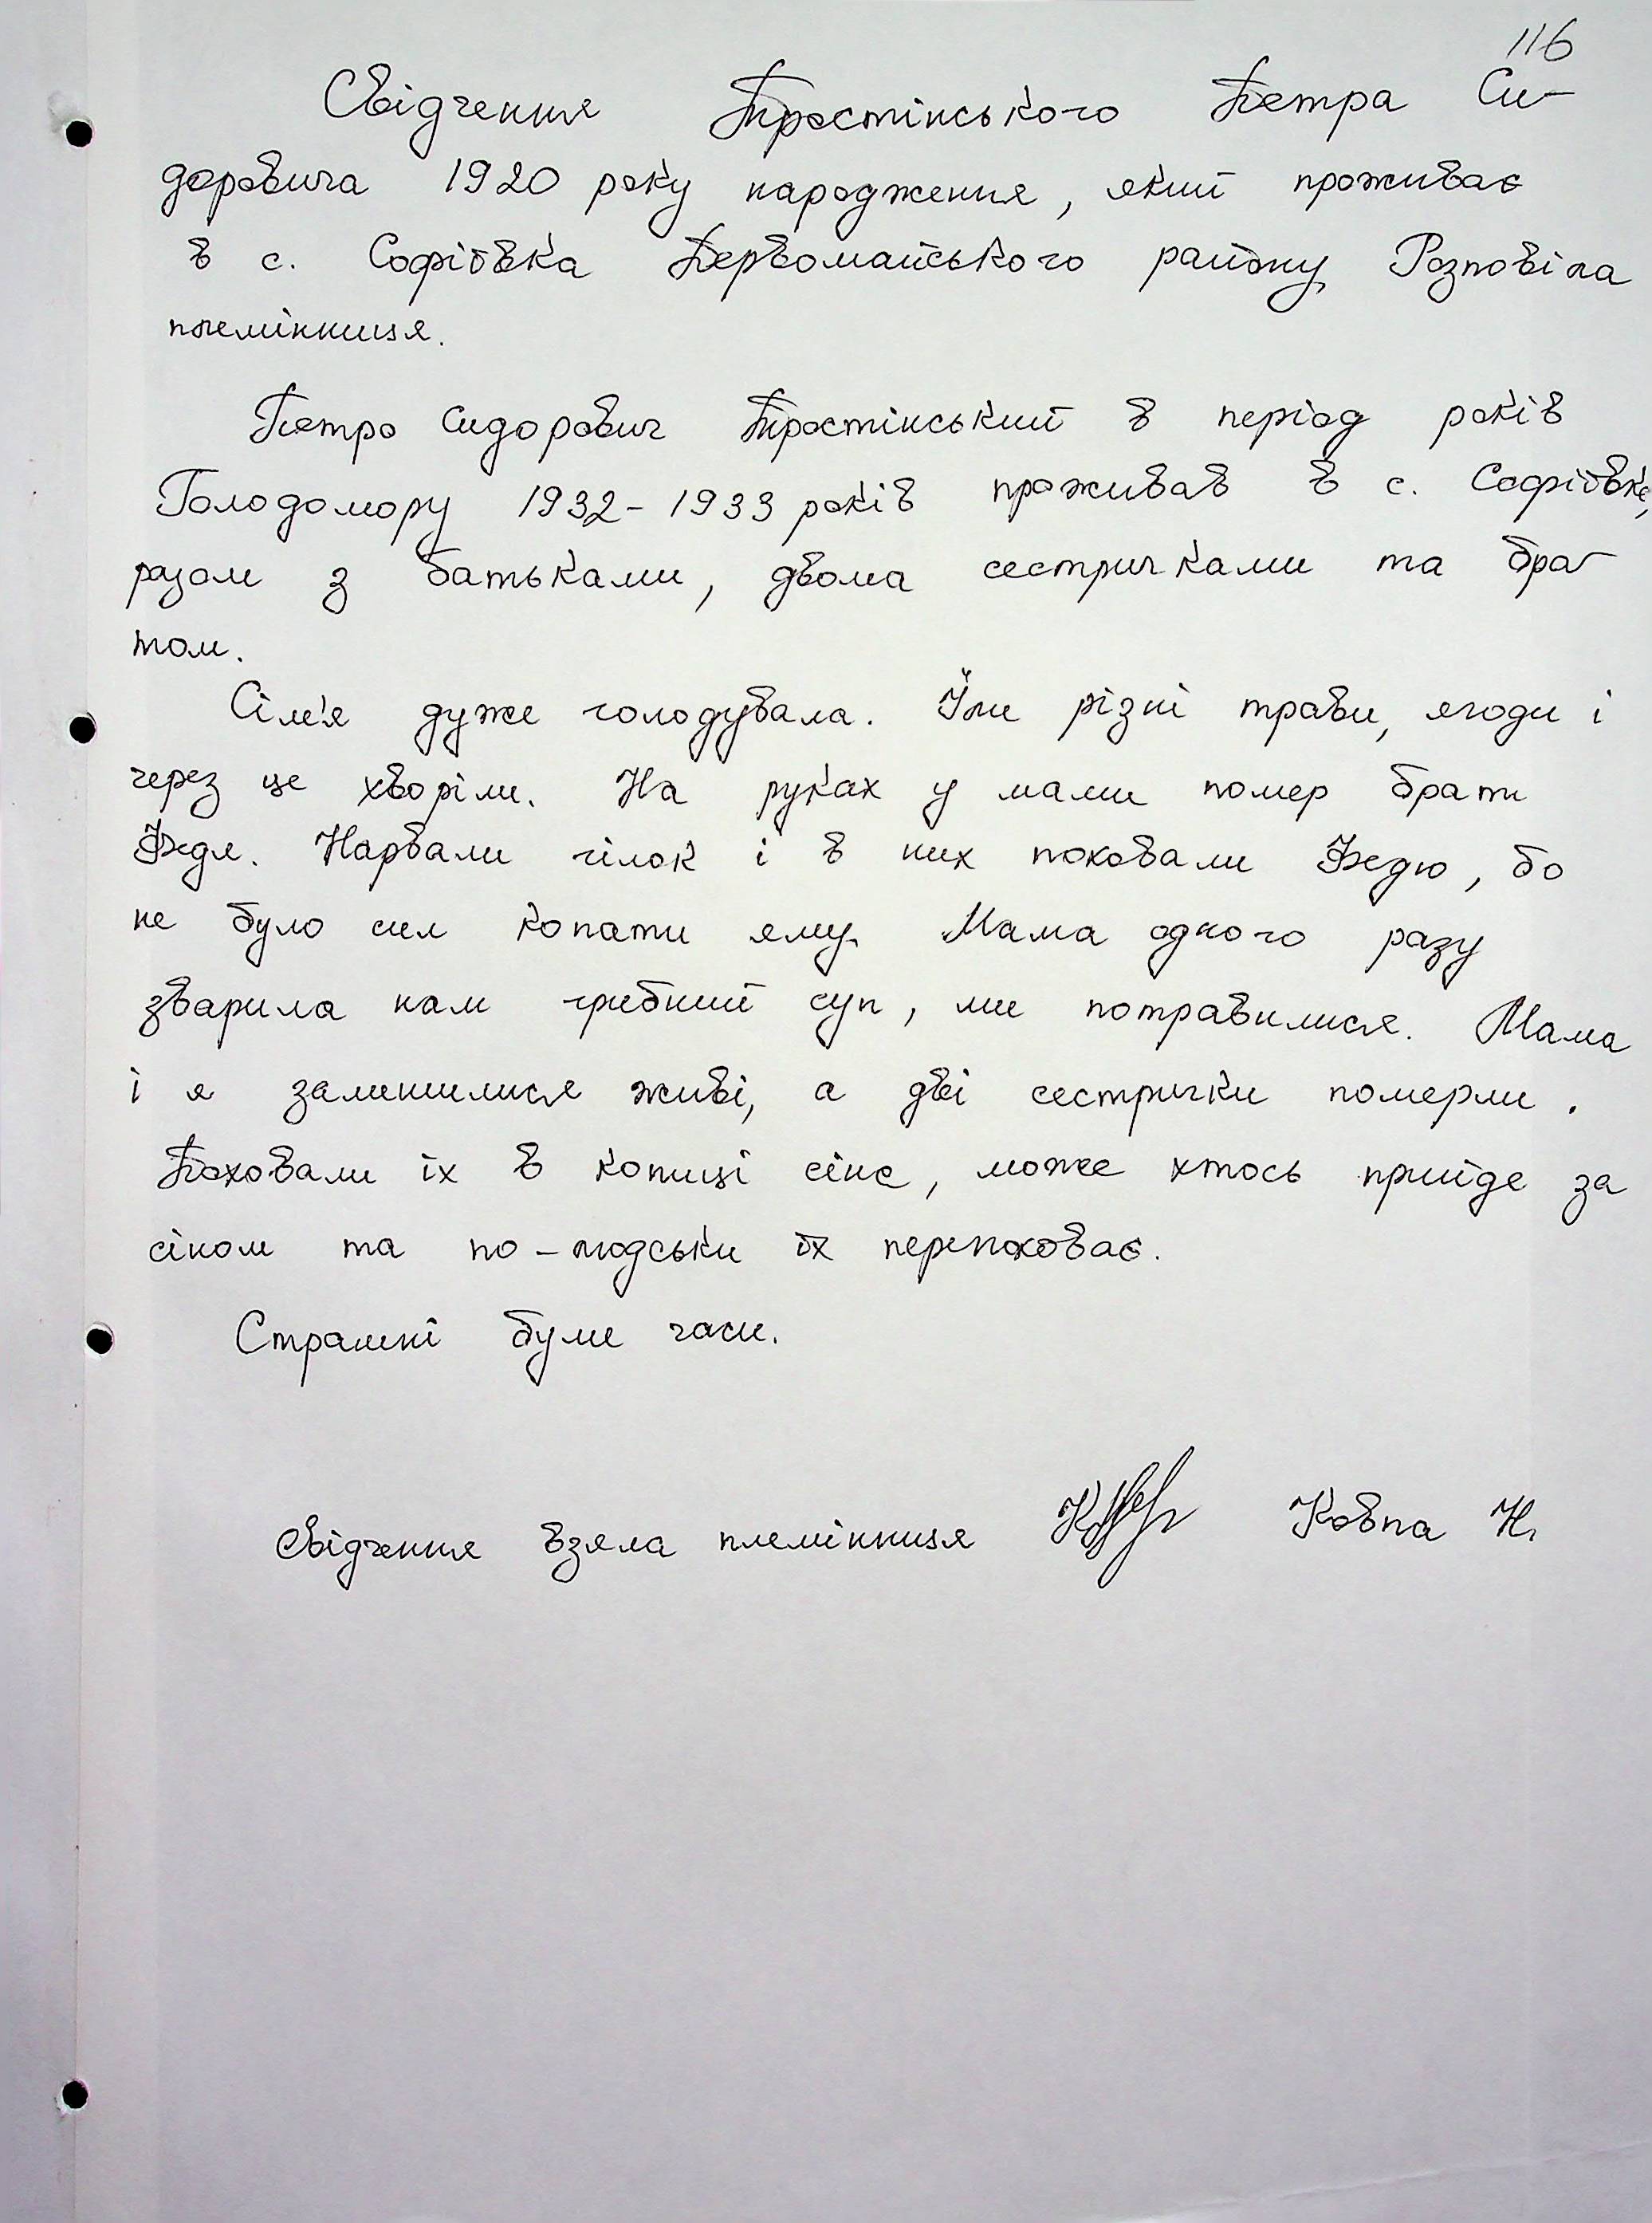 116
Свідчення Тростінського Петра Си-
доровича 1920 року народження, який проживає
в с. Софіївка Первомайського району. Розповіла
племінниця.
Петро Сидорович Тростінський в період років
Голодомору 1932-1933 років проживав в с. Софіївка,
разом з батьками, двома сестричками та бра-
том.
Сім'я дуже голодувала. Їли різні трави, ягоди і
через це хворіли. На руках у мами помер братик
Федя. Нарвали гілок і в них поховали Федю, бо
не було сил копати яму. Мама одного разу
зварила нам грибний суп, ми потравилися. Мама
і я залишилися живі, а дві сестрички померли.
Поховали їх в копиці сіна, може хтось прийде за
сіном та по-людськи їх перепоховає.
Страшні були часи.
Свідчення взяла племінниця Ковпа Н.